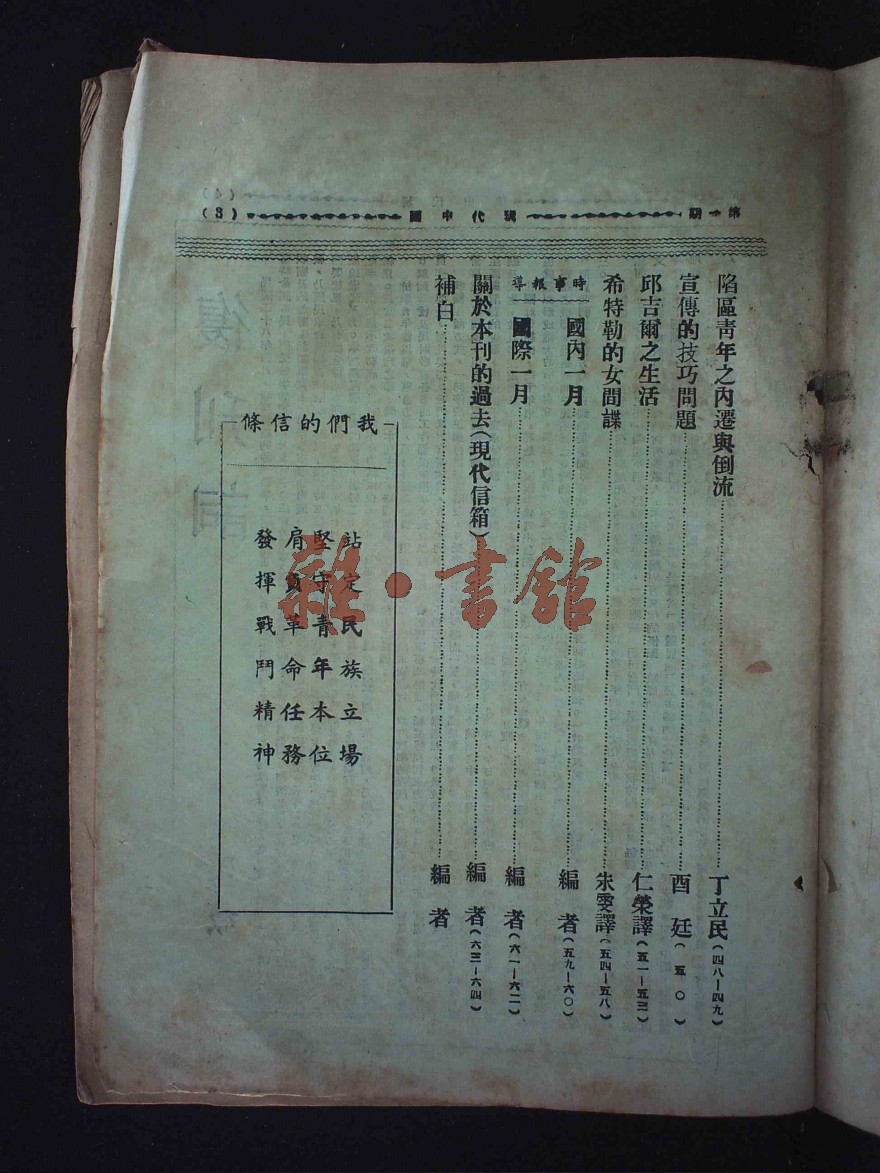 第一期
現代中國
(3)
陷區靑年之內遷與倒流……丁立民(四八—四九)
宣傳的技巧問題……酉廷(五〇)
邱吉爾之生活……仁榮譯(五一—五三)
希特勒的女間諜……朱雯譯(五四—五八)
時事報導
國內一月……編者(五九—六〇)
國際一月……編者(六一—六二)
關於本刊的過去(現代信箱)……編者(六三—六四)
補白……編者
我們的信條
站定民族立場
堅守青年本位
肩負革命任務
發揮戰鬥精神
雜·書館
復刊詞